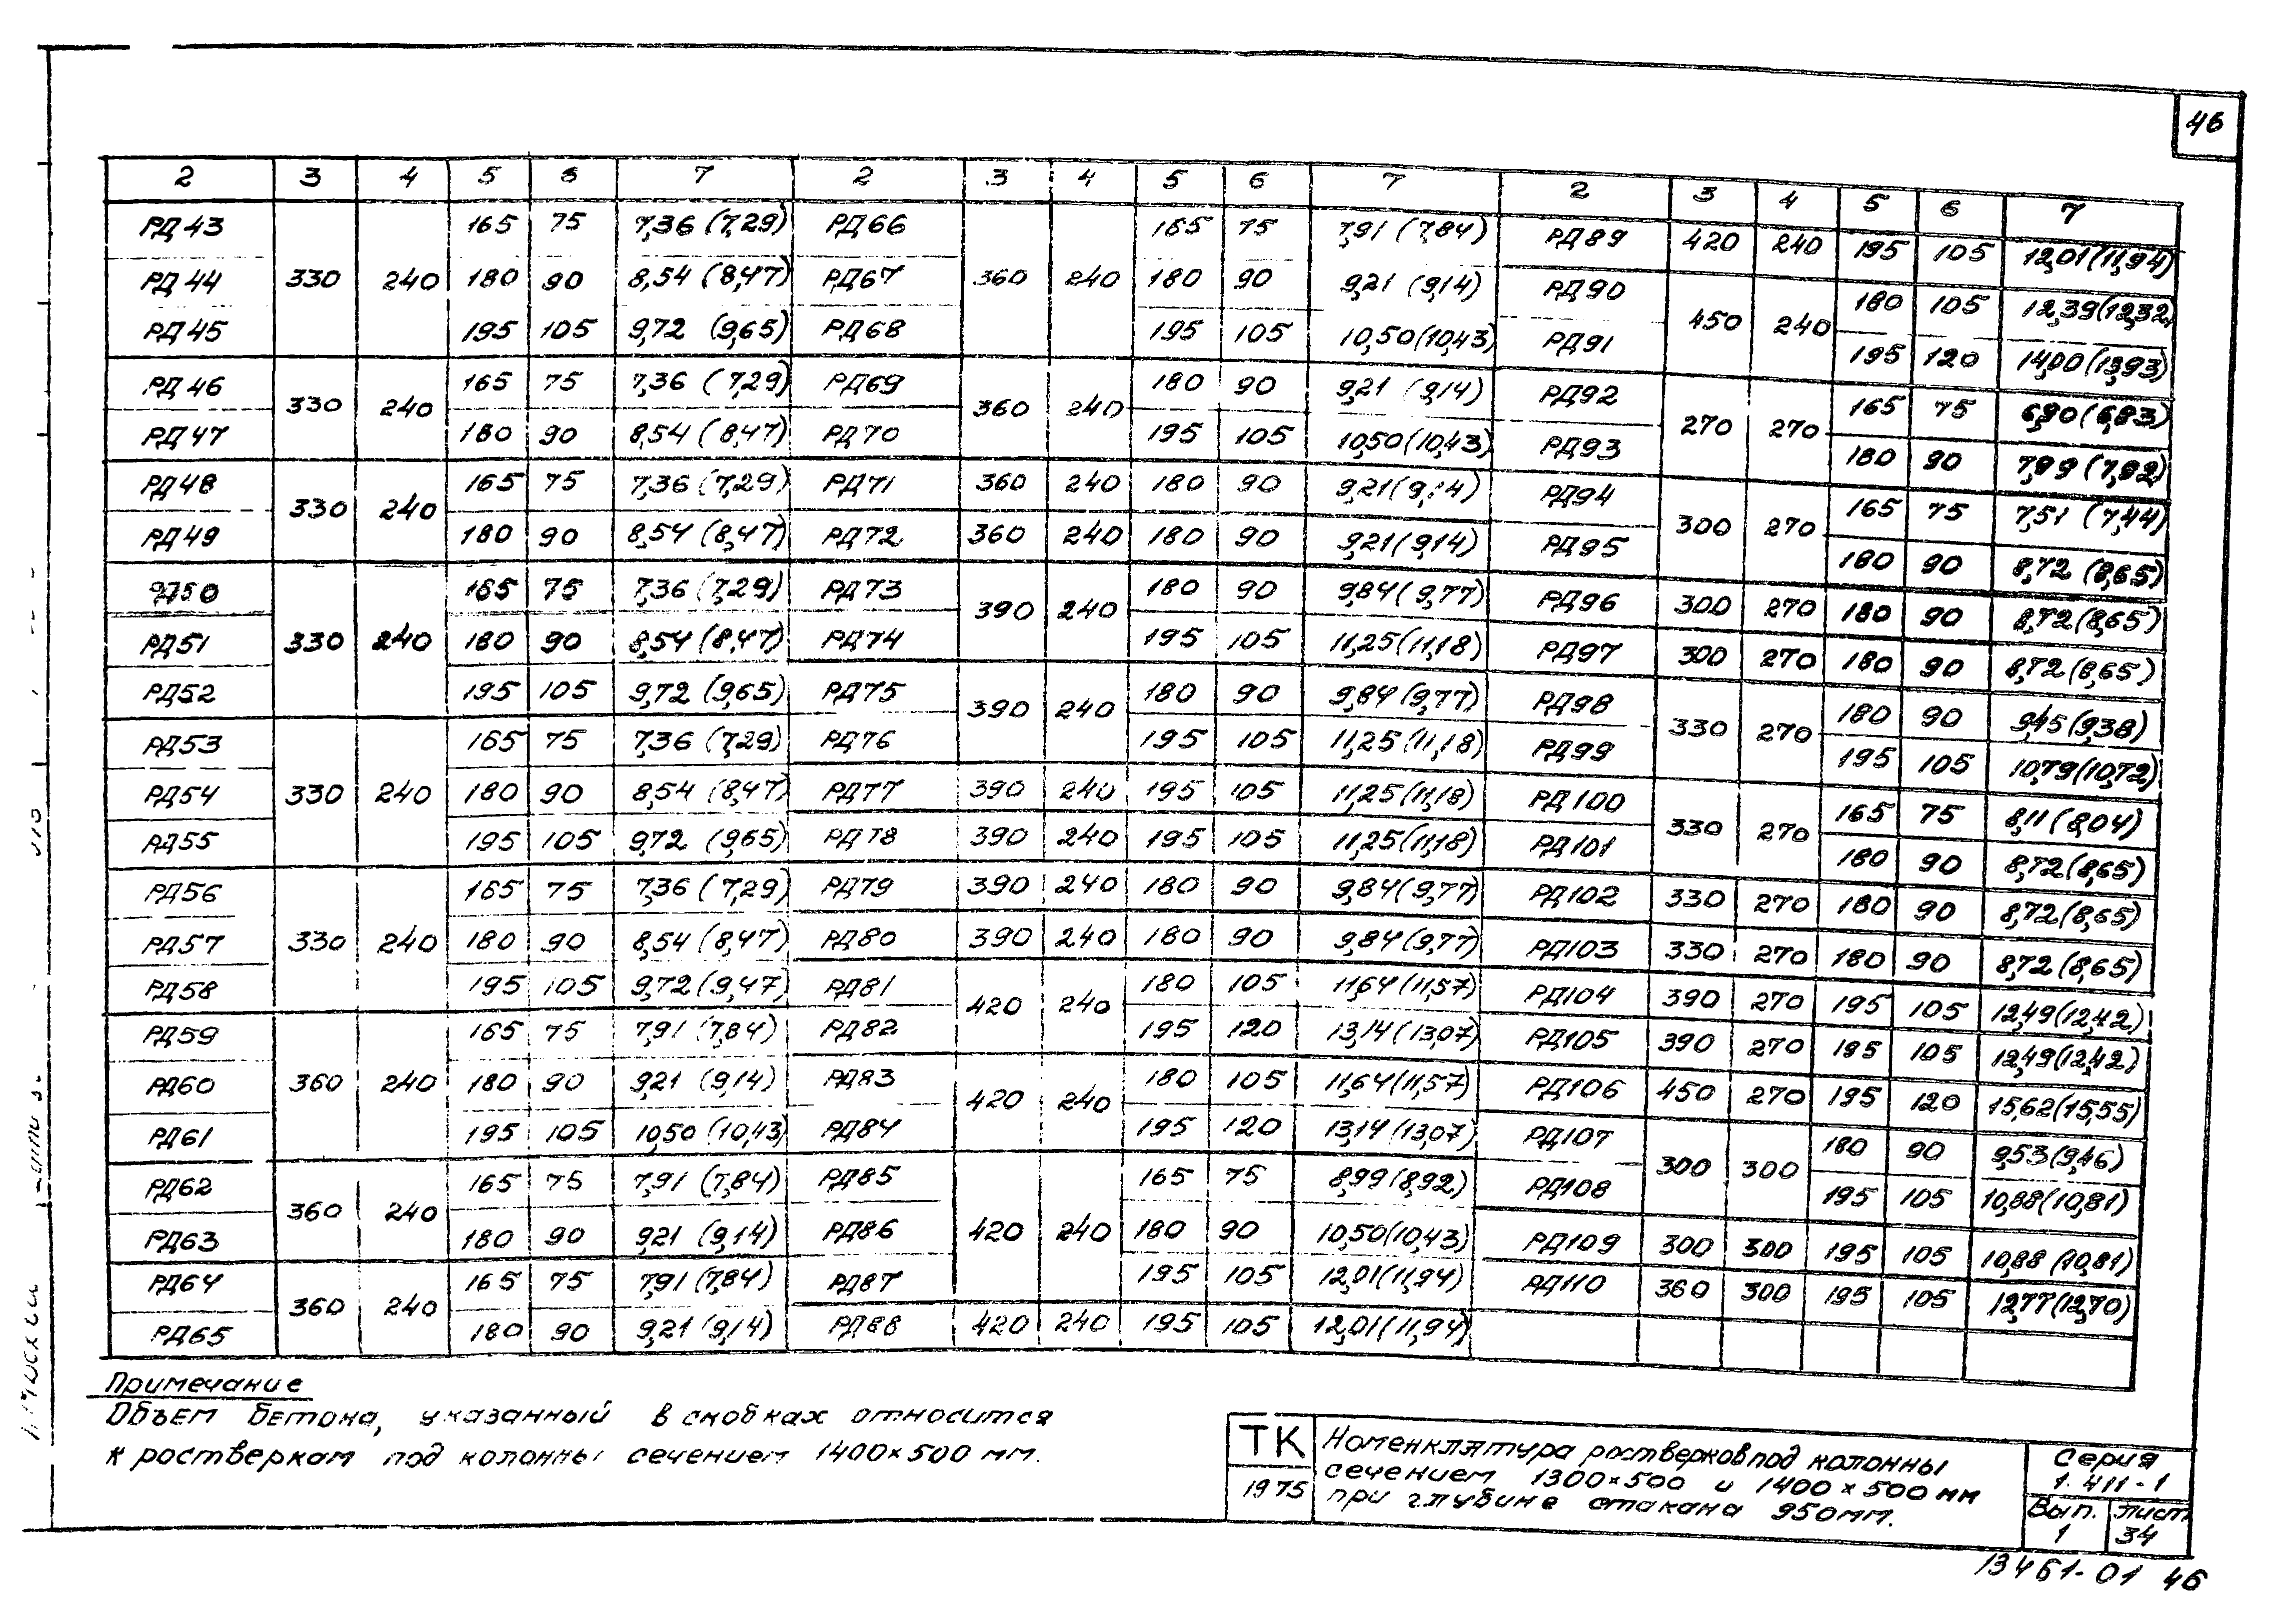 46
2 3 4 5 6 7 2 3 4 5 6 7 2 3 4 5 6 7
РД43 165 75 7,36 (7,29) РД66 165 75 7,91 (7,84) РД89 420 240 195 105 12,01(11,94)
РД44 330 240 180 90 8,54 (8,47) РД67 360 240 180 90 9,21 (9,14) РД90 450 240 180 105 12,39(12,32)
РД45 195 105 9,72 (9,65) РД68 195 105 10,50(10,43) РД91 195 120 14,00(13,93)
РД46 330 240 165 75 7,36 (7,29) РД69 360 240 180 90 9,21 (9,14) РД92 270 270 165 75 6,90(6,83)
РД47 180 90 8,54 (8,47) РД70 195 105 10,50(10,43) РД93 180 90 7,99 (7,92)
РД48 330 240 165 75 7,36 (7,29) РД71 360 240 180 90 9,21(9,14) РД94 300 270 165 75 7,51 (7,44)
РД49 180 90 8,54 (8,47) РД72 360 240 180 90 9,21(9,14) РД95 180 90 8,72 (8,65)
РД50 165 75 7,36 (7,29) РД73 390 240 180 90 9,84(9,77) РД96 300 270 180 90 8,72(8,65)
РД51 330 240 180 90 8,54 (8,47) РД74 195 105 11,25(11,18) РД97 300 270 180 90 8,72(8,65)
РД52 195 105 9,72 (9,65) РД75 390 240 180 90 9,84 (9,77) РД98 330 270 180 90 9,45(9,38)
РД53 165 75 7,36 (7,29) РД76 195 105 11,25 (11,18) РД99 195 105 10,79(10,72)
РД54 330 240 180 90 8,54 (8,47) РД77 390 240 195 105 11,25(11,18) РД100 330 270 165 75 8,11(8,04)
РД55 195 105 9,72 (9,65) РД78 390 240 195 105 11,25(11,18) РД101 180 90 8,72(8,65)
РД56 165 75 7,36 (7,29) РД79 390 240 180 90 9,84(9,77) РД102 330 270 180 90 8,72(8,65)
РД57 330 240 180 90 8,54 (8,47) РД80 390 240 180 90 9,84(9,77) РД103 330 270 180 90 8,72(8,65)
РД58 195 105 9,72 (9,47) РД81 420 240 180 105 11,64(11,57) РД104 390 270 195 105 12,49(12,42)
РД59 165 75 7,91 (7,84) РД82 195 120 13,14(13,07) РД105 390 270 195 105 12,49(12,42)
РД60 360 240 180 90 9,21 (9,14) РД83 420 240 180 105 11,64(11,57) РД106 450 270 195 120 15,62(15,55)
РД61 195 105 10,50 (10,43) РД84 195 120 13,14(13,07) РД107 300 300 180 90 9,53(9,46)
РД62 360 240 165 75 7,91 (7,84) РД85 165 75 8,99(8,92) РД108 195 105 10,88(10,81)
РД63 180 90 9,21 (9,14) РД86 420 240 180 90 10,50(10,43) РД109 300 300 195 105 10,88 (10,81)
РД64 360 240 165 75 7,91 (7,84) РД87 195 105 12,01(11,94) РД110 360 300 195 105 12,77(12,70)
РД65 180 90 9,21 (9,14) РД88 420 240 195 105 12,01(11,94)
Примечание
Объем бетона, указанный в скобках относится
к ростверкам под колонны сечением 1400×500 мм.
ТК
1975
Номенклятура ростверков под колонны
сечением 1300×500 и 1400×500 мм
при глубине стакана 950мм.
Серия
1.411-1
Вып. Лист
1 34
13461-01 46